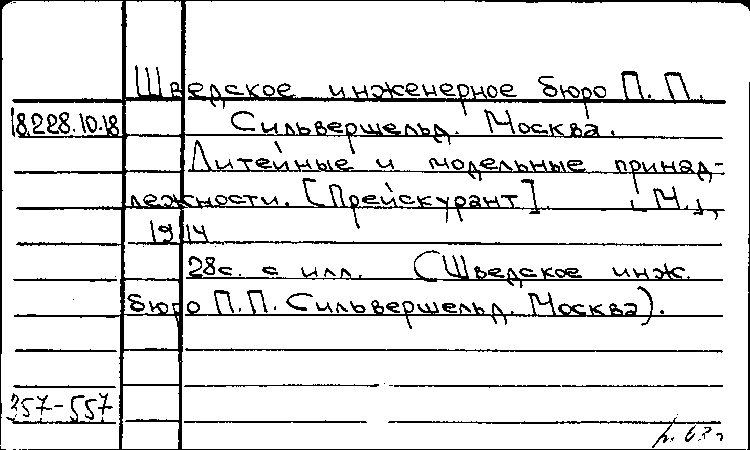 Шведское инженерное бюро П. П.
18.228.10.18 Сильвершельд. Москва.
Литейные и модельные принад-
лежности. [Прейскурант]. [М.],
1914
28с. с илл. (Шведское инж.
бюро П.П. Сильвершельд. Москва).
357-557